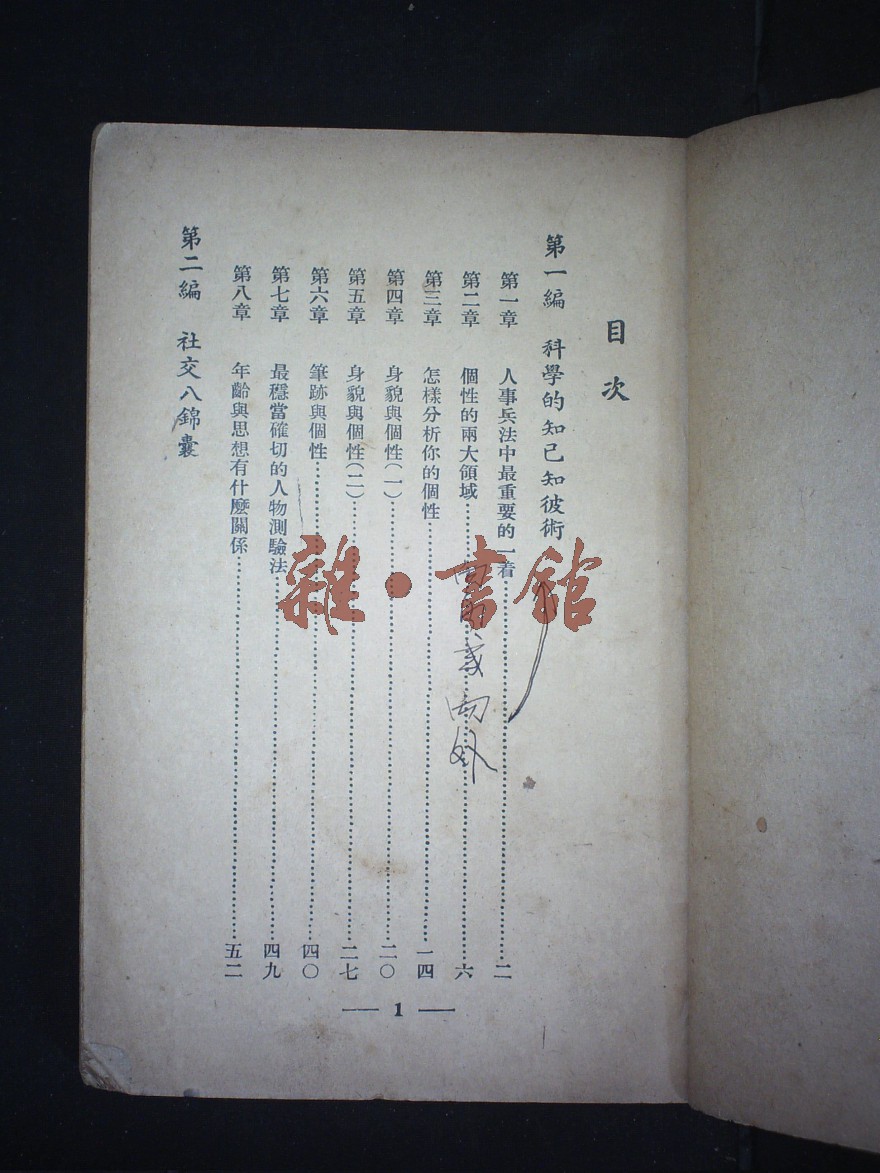 目次
第一編　科學的知己知彼術
第一章　人事兵法中最重要的一着……二
第二章　個性的兩大領域……六
第三章　怎樣分析你的個性……一四
第四章　身貌與個性（一）……二〇
第五章　身貌與個性（二）……二七
第六章　筆跡與個性……四〇
第七章　最穩當確切的人物測驗法……四九
第八章　年齡與思想有什麼關係……五二
第二編　社交八錦囊
— 1 —
雜·書館